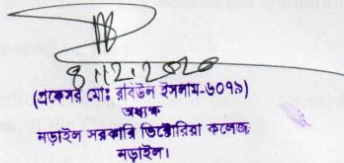 8.12.2020
(প্রফেসর মোঃ রবিউল ইসলাম-৬০৭৯)
অধ্যক্ষ
নড়াইল সরকারি ভিক্টোরিয়া কলেজ
নড়াইল।